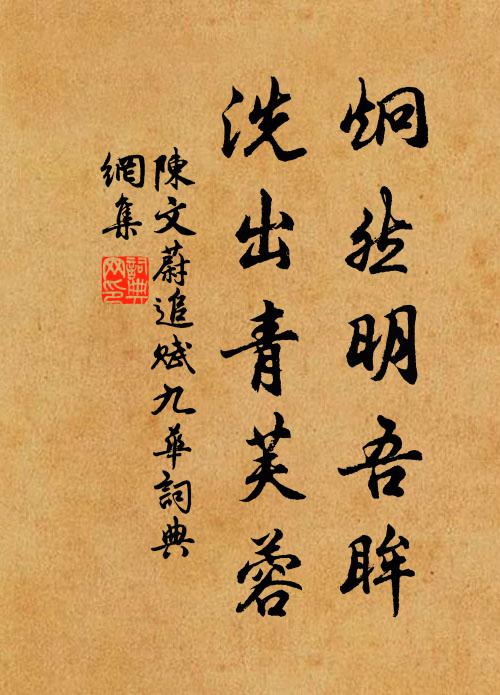 炯然明吾眸
洗出青芙蓉
陳文蔚追賦九華詞典
網集
詞典
网印